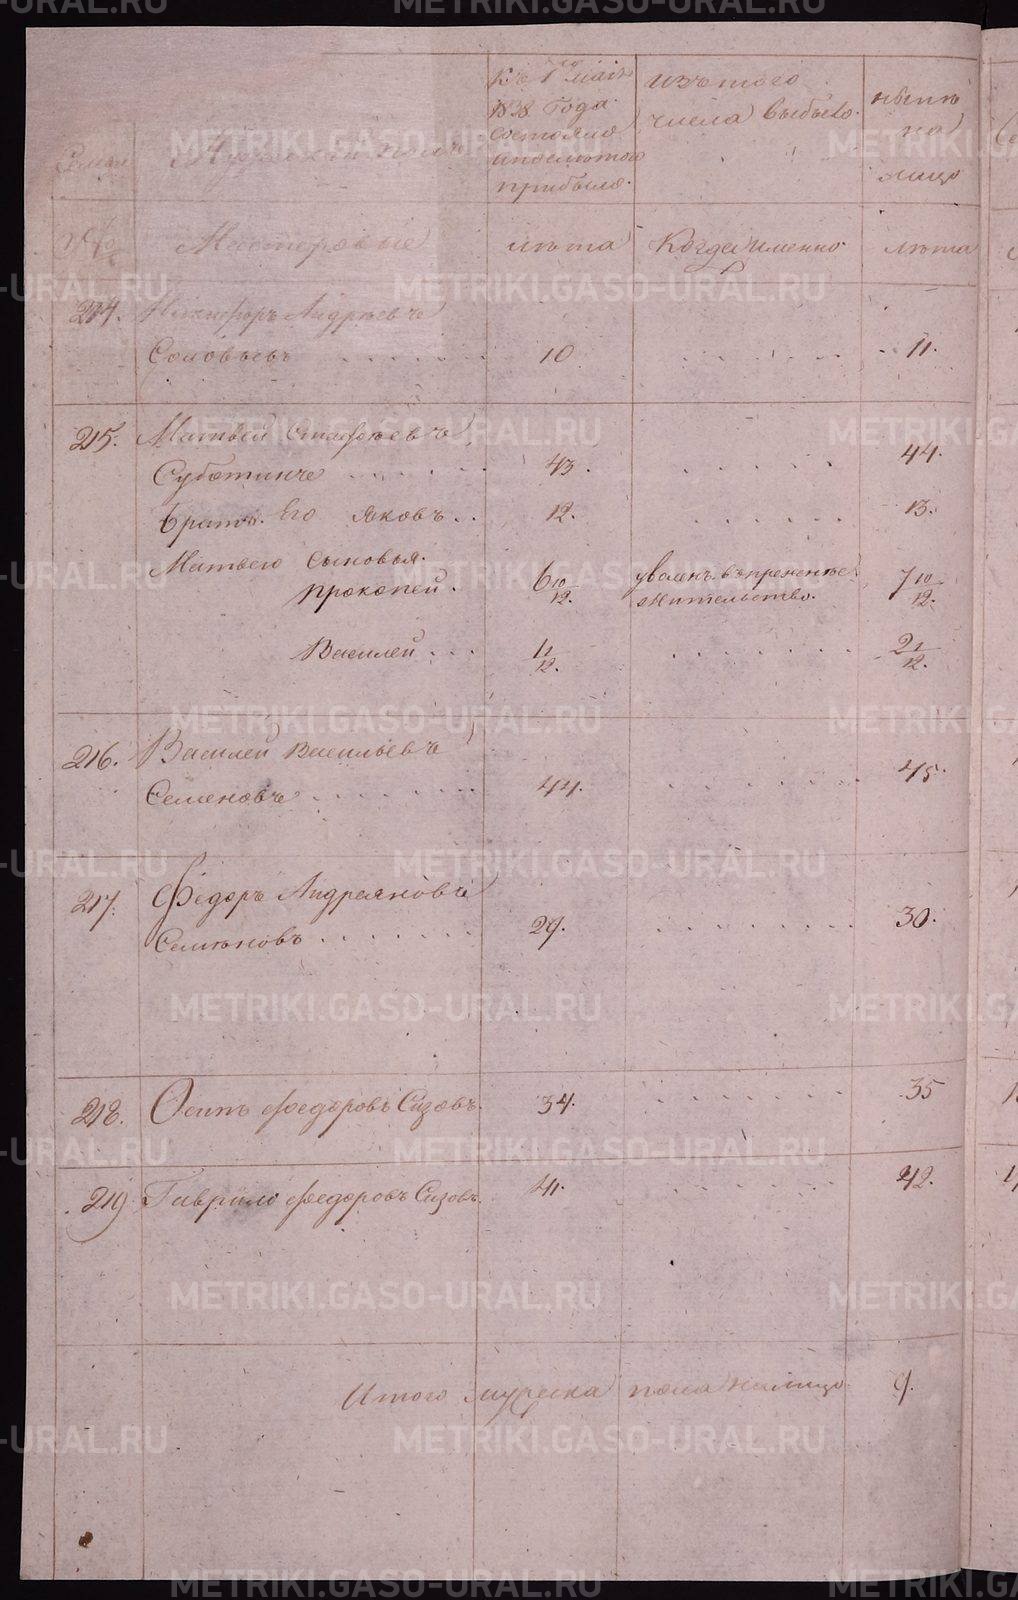 Къ 1го Маія
1838 Года
состояло
и послѣ того
прибыло.
Изъ того
числа выбыло.
Нынѣ
на
лицо
Семьи
Мужескій полъ
№
Мастеровые
лѣта
Когда именно
лѣта
214. Никифоръ Андрѣевъ
Соловьевъ . . . . . . 10 . . . . . . 11.
215. Матвей Ст
Суботинъ . . . . . 43. . . . . . 44.
братъ Его Яковъ. . 12. . . . . . . 13.
Матвея сыновья.
Прокопей. 6 10/12. уволенъ въ
жительство. 7 10/12.
Василей . . . 11/12. . . . . . . .
216. Василей Васильевъ
Семеновъ . . . . . . . 44. . . . . . 45.
217. Федоръ Андреяновъ
Семѣновъ . . . . . . . 29. . . . . . . . . 30.
218. Осипъ Федоровъ Сизовъ. 34. . . . . . . 35
219 Гаврило Федоровъ Сизовъ. 41. . . . . . . 42.
Итого мужеска пола налицо 9.
METRIKI.GASO-URAL.RU